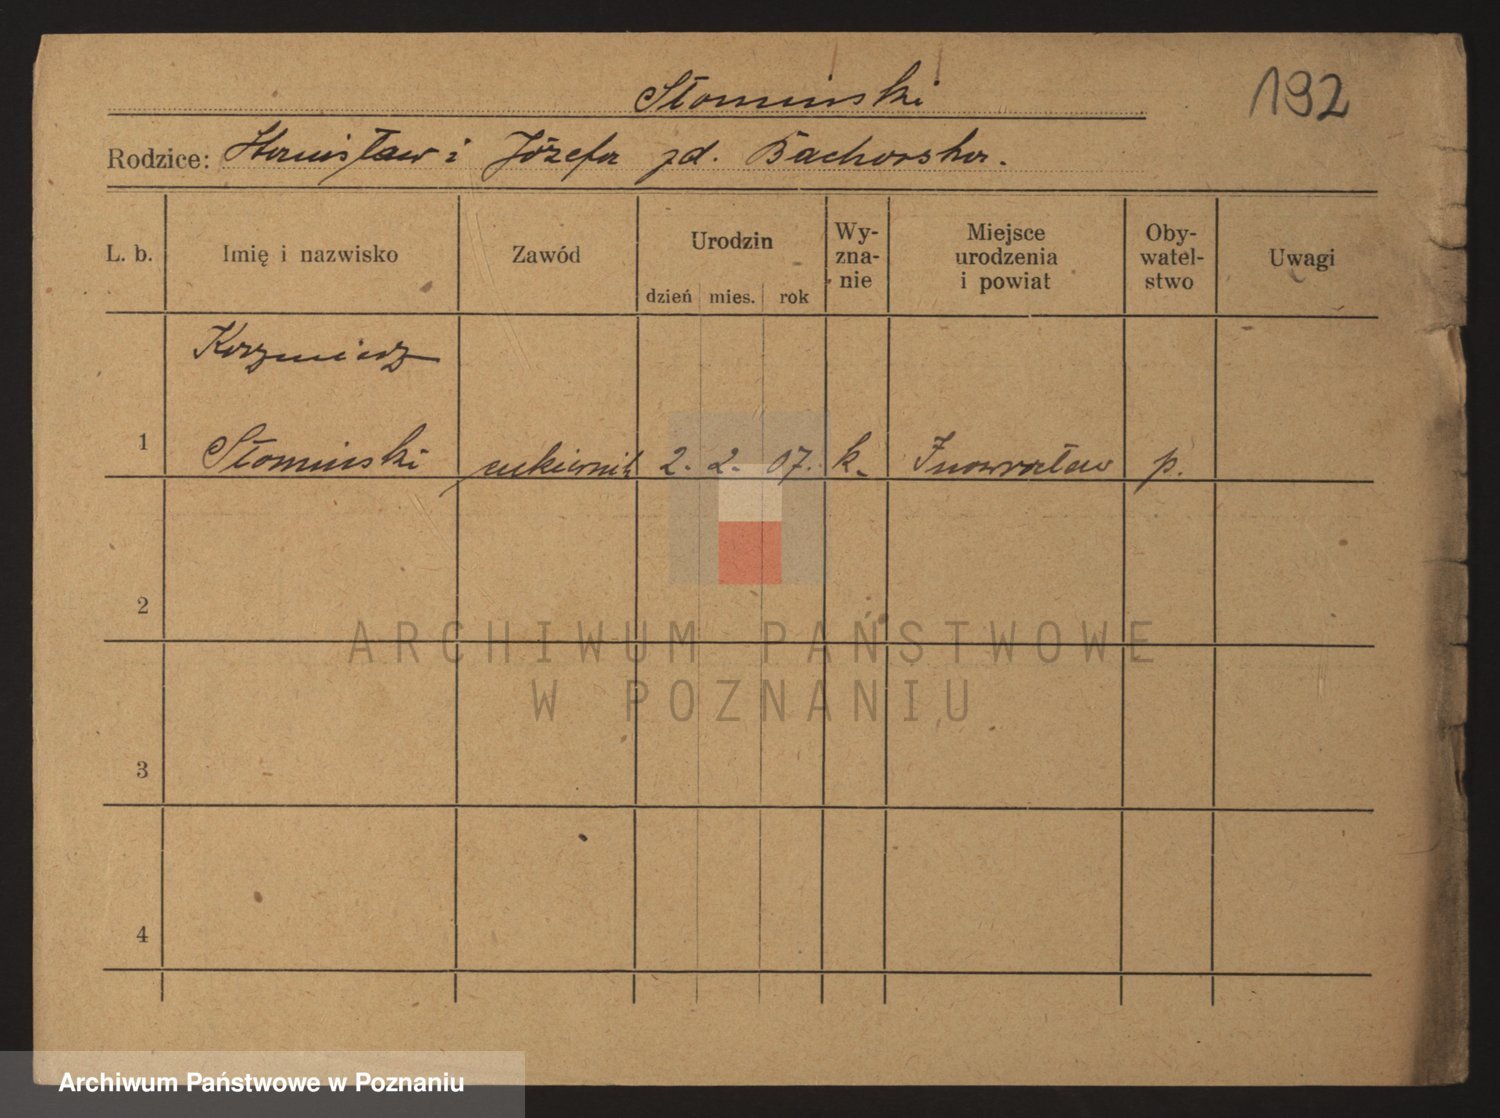 192
Słomiński
Rodzice: Stanisław i Józefa zd. Bachorska.
L. b.
Imię i nazwisko
Zawód
Urodzin
dzień mies. rok
Wy-
zna-
nie
Miejsce
urodzenia
i powiat
Oby-
watel-
stwo
Uwagi
Kazmierz
1 Słomiński cukiernik 2. 2. 07. k. Inowrocław p.
2
3
4
ARCHIWUM PAŃSTWOWE
W POZNANIU
Archiwum Państwowe w Poznaniu